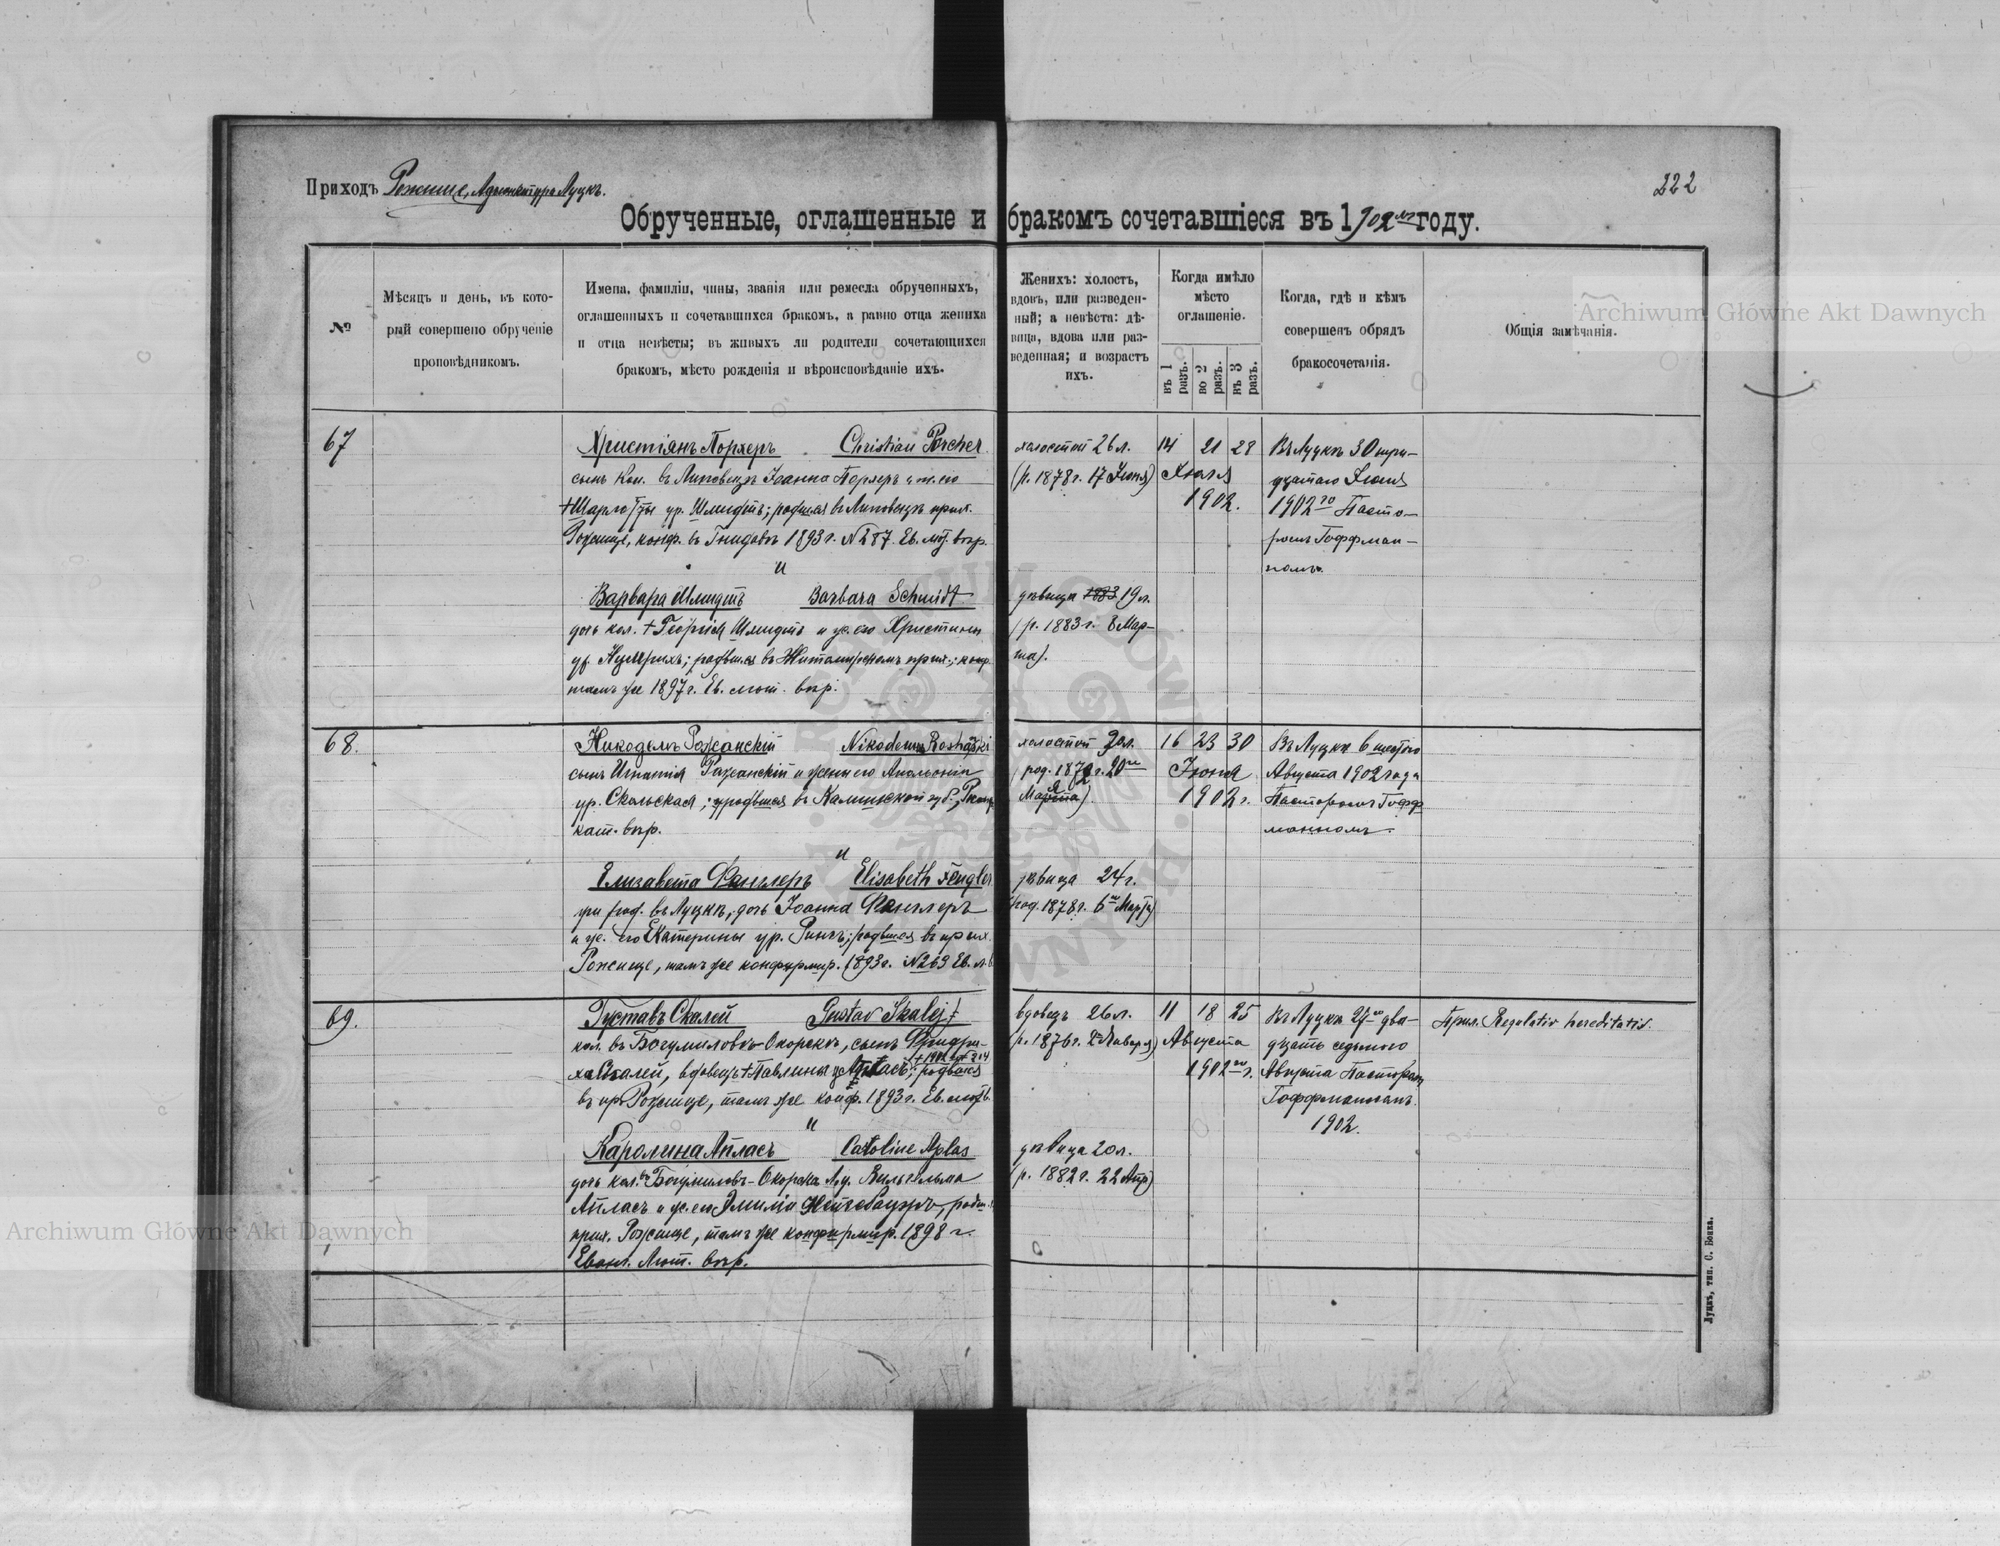 Приходъ Рожище, Адъюнктура Луцкъ.
222
Обрученные, оглашенные и бракомъ сочетавшіеся въ 1902 м году.
№
Мѣсяцъ и день, въ кото-
рый совершено обрученіе
проповѣдникомъ.
Имена, фамиліи, чины, званія или ремесла обрученныхъ,
оглашенныхъ и сочетавшихся бракомъ, а равно отца жениха
и отца невѣсты; въ живыхъ ли родители сочетающихся
бракомъ, мѣсто рожденія и вѣроисповѣданіе ихъ.
Женихъ: холостъ,
вдовъ, или разведен-
ный; а невѣста: дѣ-
вица, вдова или раз-
веденная; и возрастъ
ихъ.
Когда имѣло
мѣсто
оглашеніе.
въ 1 разъ.
во 2 разъ.
въ 3 разъ.
Когда, гдѣ и кѣмъ
совершенъ обрядъ
бракосочетанія.
Общія замѣчанія.
67
Христіянъ Порхеръ Christian Porcher
сынъ Кол. въ Липовецъ Іоанна Порхеръ и
† Шарлотты ур. Шмидтъ; родился въ Липовецъ прих.
Рожище, конф. въ Гнидавъ 1893 г. N 287. Ев. лют. вѣр.
и
Варвара Шмидтъ Barbara Schmidt
дочь кол. † Георгія Шмидтъ и ж. его Христины
ур. ; родвшся въ Житомирскомъ прих.; конф.
тамъ же 1897 г. Ев. лют. вѣр.
холостой 26 л.
(р. 1878 г. 17 Іюня)
дѣвица 1883 19 л.
(р. 1883 г. 8 Мар-
та).
14 21 28
Іюля
1902.
Въ Луцкъ 30 три-
дцатаго Іюля
1902 го Пасто-
ромъ Гоффман-
номъ.
68.
Никодемъ Рожанскій Nikodemus Roshański
сынъ Игнатія Рожанскій и жены его Апольоніи
ур. Скольская; родвшся въ Калишской губ., Римск.
кат. вѣр.
и
Елизавета Фенглеръ Elisabeth Fengler
при род. въ Луцкъ, дочь Іоанна Фенглеръ
и ж. его Екатерины ур. Ринкъ; родвшся въ прих.
Рожище, тамъ же конфирмир. 1893 г. N 269 Ев. л. в.
холостой 30 л.
(род. 1872 г. 20 го
).
дѣвица 24 г.
(род. 1878 г. 6 го Марта)
16 23 30
Іюня
1902 г.
Въ Луцкъ 6 шестого
Августа 1902 года
Пасторомъ Гофф
манномъ.
69.
Густавъ Скалей Gustav Skalej
кол. въ Богумиловкъ-Окорскъ, сынъ Фридри-
ха Скалей, вдовецъ † Павлина ур. Апласъ; родвшся
† 1902
въ пр. Рожище, тамъ же конф. 1893 г. Ев. лют. в.
и
Каролина Апласъ Caroline Aplas
дочь кол. въ Богумиловъ-Окорска Луц. у. Вильгельма
Апласъ и ж. его Эмиліи Нейгебауеръ, родвш.
прих. Рожище, тамъ же конфирмир. 1898 г.
Еванг. Лют. вѣр.
вдовецъ 26 л.
(р. 1876 г. Января)
дѣвица 20 л.
(р. 1882 г. 22 Апр)
11 18 25
Августа
1902 го г.
Въ Луцкъ 27 го два-
дцать седьмого
Августа Пасторомъ
Гоффманномъ.
1902.
Прил. Regulativ hereditatis.
Луцкъ, тип. С. Бонка.
Archiwum Główne Akt Dawnych
Archiwum Główne Akt Dawnych